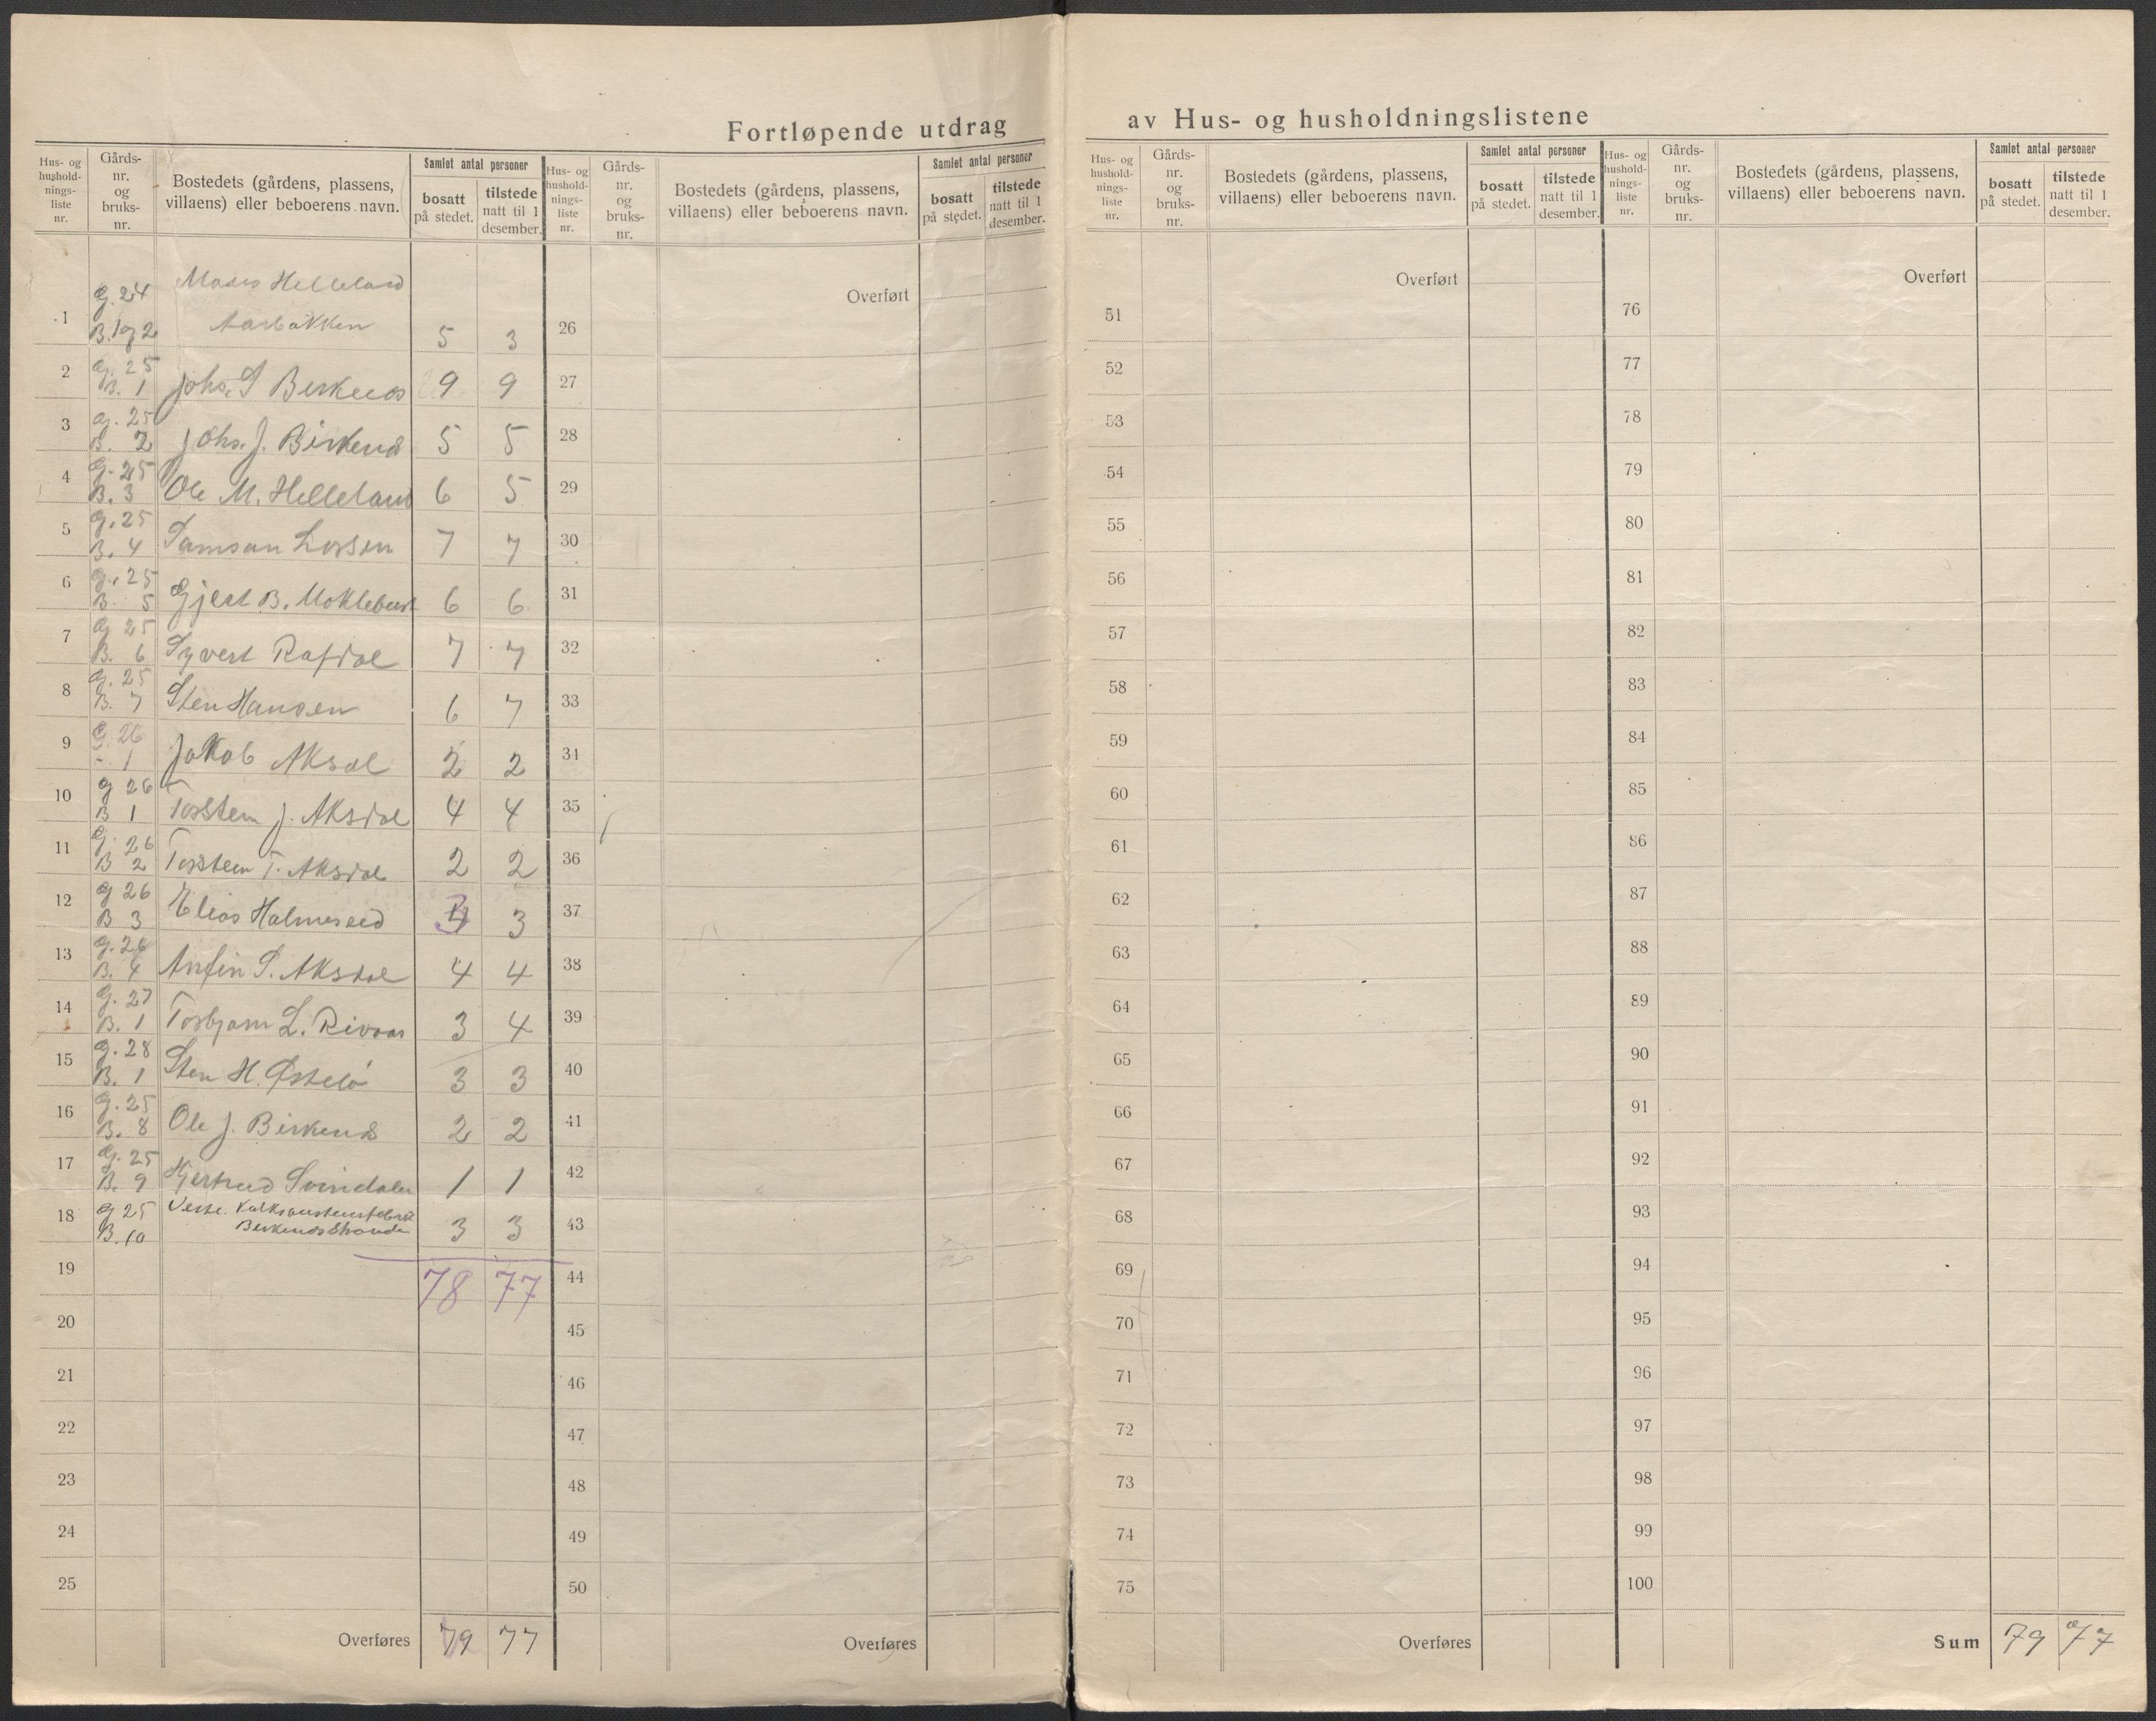 Fortløpende utdrag av Hus- og husholdningslistene
Hus- og hushold-nings-liste nr. Gårds-nr. og bruks-nr. Bostedets (gårdens, plassens, villaens) eller beboerens navn. Samlet antal personer bosatt på stedet. tilstede natt til 1 desember.
1 G. 24 B. 1 og 2 Mads Helleland Aarbakken 5 3
2 G. 25 B. 1 Johs. S Birkenes 9 9
3 G. 25 B. 2 Johs. J. Birkenes 5 5
4 G. 25 B. 3 Ole M. Helleland 6 5
5 G. 25 B. 4 Samson Larsen 7 7
6 G. 25 B. 5 Gjert B. Moklebust 6 6
7 G. 25 B. 6 Syvert Rafdal 7 7
8 G. 25 B. 7 Sten Hansen 6 7
9 G. 26 - 1 Jakob Aksdal 2 2
10 G 26 B 1 Torsten J. Aksdal 4 4
11 G. 26 B 2 Torstein T. Aksdal 2 2
12 G 26 B 3 Elias Halmeseid 3 3
13 G. 26 B. 4 Anfin S. Aksdal 4 4
14 G. 27 B. 1 Torbjørn L. 3 4
15 G. 28 B. 1 Sten H. Østebø 3 3
16 G. 25 B. 8 Ole J. Birkenes 2 2
17 G. 25 B. 9 Gjertrud Svindalen 1 1
18 G 25 B. 10 Birkenes Strande 3 3
19 78 77
20
21
22
23
24
25
Overføres 79 77
Hus- og hushold-nings-liste nr. Gårds-nr. og bruks-nr. Bostedets (gårdens, plassens, villaens) eller beboerens navn. Samlet antal personer bosatt på stedet. tilstede natt til 1 desember.
Overført
26
27
28
29
30
31
32
33
34
35
36
37
38
39
40
41
42
43
44
45
46
47
48
49
50
Overføres
Hus- og hushold-nings-liste nr. Gårds-nr. og bruks-nr. Bostedets (gårdens, plassens, villaens) eller beboerens navn. Samlet antal personer bosatt på stedet. tilstede natt til 1 desember.
Overført
51
52
53
54
55
56
57
58
59
60
61
62
63
64
65
66
67
68
69
70
71
72
73
74
75
Overføres
Hus- og hushold-nings-liste nr. Gårds-nr. og bruks-nr. Bostedets (gårdens, plassens, villaens) eller beboerens navn. Samlet antal personer bosatt på stedet. tilstede natt til 1 desember.
Overført
76
77
78
79
80
81
82
83
84
85
86
87
88
89
90
91
92
93
94
95
96
97
98
99
100
Sum 79 77